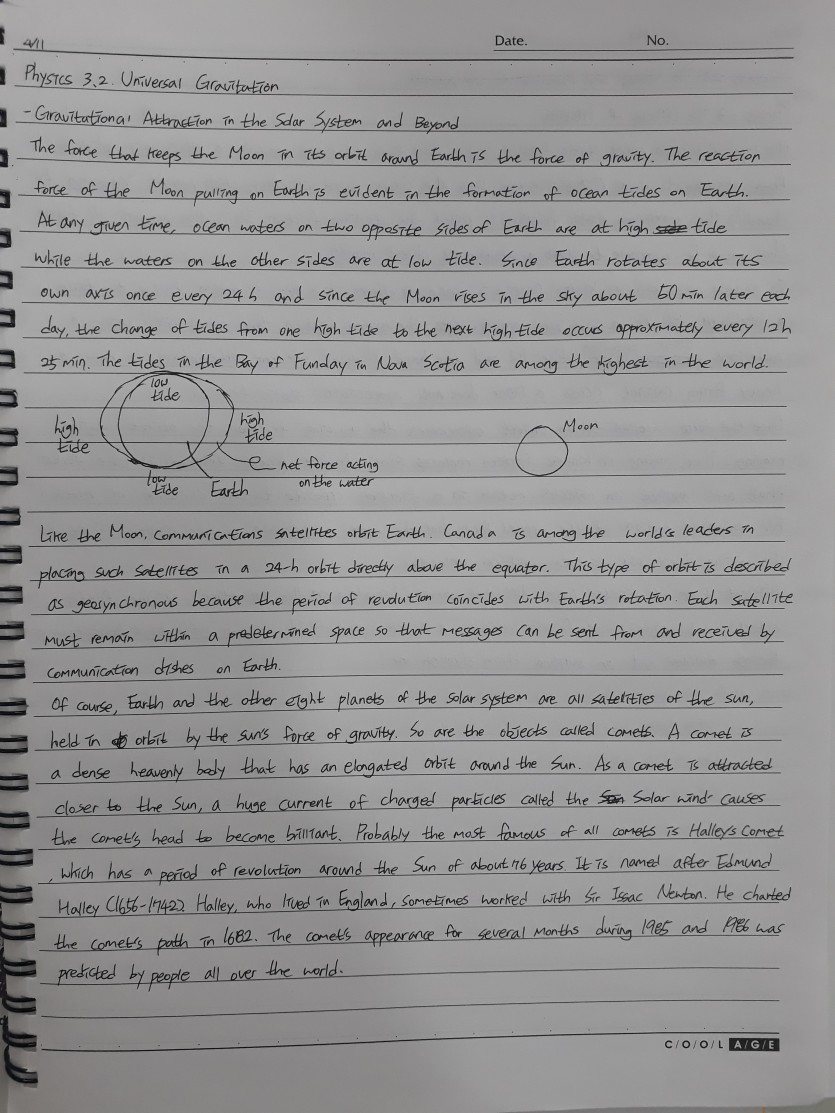 4/11
Date. No.
Physics 3.2. Universal Gravitation
- Gravitational Attraction in the Solar System and Beyond
The force that keeps the Moon in its orbit around Earth is the force of gravity. The reaction
force of the Moon pulling on Earth is evident in the formation of ocean tides on Earth.
At any given time, ocean waters on two opposite sides of Earth are at high side tide
while the waters on the other sides are at low tide. Since Earth rotates about its
own axis once every 24 h and since the Moon rises in the sky about 50 min later each
day, the change of tides from one high tide to the next high tide occurs approximately every 12 h
25 min. The tides in the Bay of Funday in Nova Scotia are among the highest in the world.
low
tide
high
tide
high
tide
Moon
net force acting
on the water
low
tide
Earth
Like the Moon, communications satellites orbit Earth. Canada is among the world's leaders in
placing such satellites in a 24-h orbit directly above the equator. This type of orbit is described
as geosynchronous because the period of revolution coincides with Earth's rotation. Each satellite
must remain within a predetermined space so that messages can be sent from and received by
communication dishes on Earth.
Of course, Earth and the other eight planets of the solar system are all satelities of the sun,
held in orbit by the sun's force of gravity. So are the objects called comets. A comet is
a dense heavenly body that has an elongated orbit around the Sun. As a comet is attracted
closer to the Sun, a huge current of charged particles called the Son Solar wind causes
the comet's head to become brilliant. Probably the most famous of all comets is Halley's Comet
, which has a period of revolution around the Sun of about 76 years. It is named after Edmund
Halley (1656-1742) Halley, who lived in England, sometimes worked with Sir Issac Newton. He charted
the comet's path in 1682. The comet's appearance for several months during 1985 and 1986 was
predicted by people all over the world.
COOL AGE